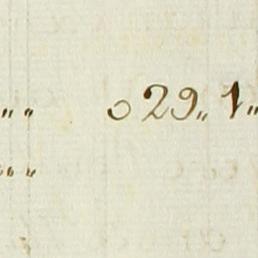 „ „ 029„ 1„
„ „